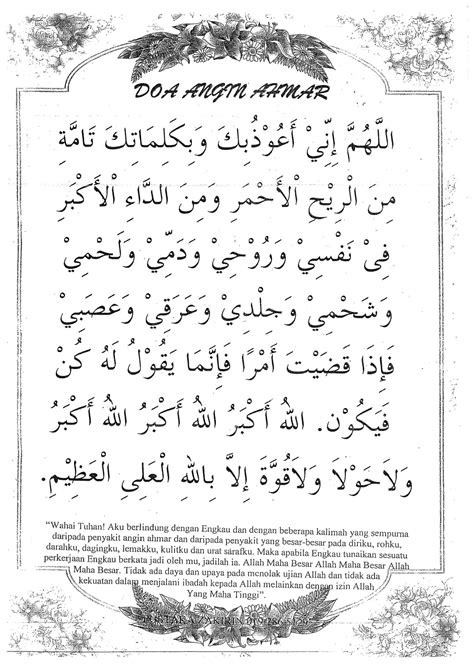 DOA ANGIN AHMAR
اللَّهُمَّ إِنِّيْ أَعُوْذُبِكَ وَبِكَلِمَاتِكَ تَامَّةِ
مِنَ الْرِيْحِ اْلأَحْمَرِ وَمِنَ الدَّاءِ اْلأَكْبَرِ
فِىْ نَفْسِيْ وَرُوْحِيْ وَدَمِّيْ وَلَحْمِيْ
وَشَحْمِيْ وَجِلْدِيْ وَعَرَقِيْ وَعَصَبِيْ
فَإِذَا قَضَيْتَ أَمْرًا فَإِنَّمَا يَقُوْلُ لَهُ كُنْ
فَيَكُوْن. اللهُ أَكْبَرُ اللهُ أَكْبَرُ اللهُ أَكْبَرُ
وَلاَحَوْلاَ وَلاَقُوَّةَ إِلاَّ بِاللهِ الْعَلِى الْعَظِيْمِ.
"Wahai Tuhan! Aku berlindung dengan Engkau dan dengan beberapa kalimah yang sempurna
daripada penyakit angin ahmar dan daripada penyakit yang besar-besar pada diriku, rohku,
darahku, dagingku, lemakku, kulitku dan urat sarafku. Maka apabila Engkau tunaikan sesuatu
perkerjaan Engkau berkata jadi oleh mu, jadilah ia. Allah Maha Besar Allah Maha Besar Allah
Maha Besar. Tidak ada daya dan upaya pada menolak ujian Allah dan tidak ada
kekuatan dalam menjalani ibadah kepada Allah melainkan dengan izin Allah
Yang Maha Tinggi".